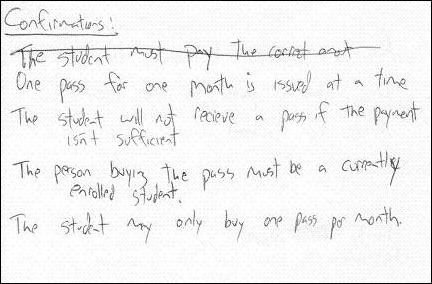 Confirmations:
The student must pay the corret amot
One pass for one month is issued at a time
The student will not recieve a pass if the payment
isnt sufficient
The person buying the pass must be a currently
enrolled student.
The student may only buy one pass per month.